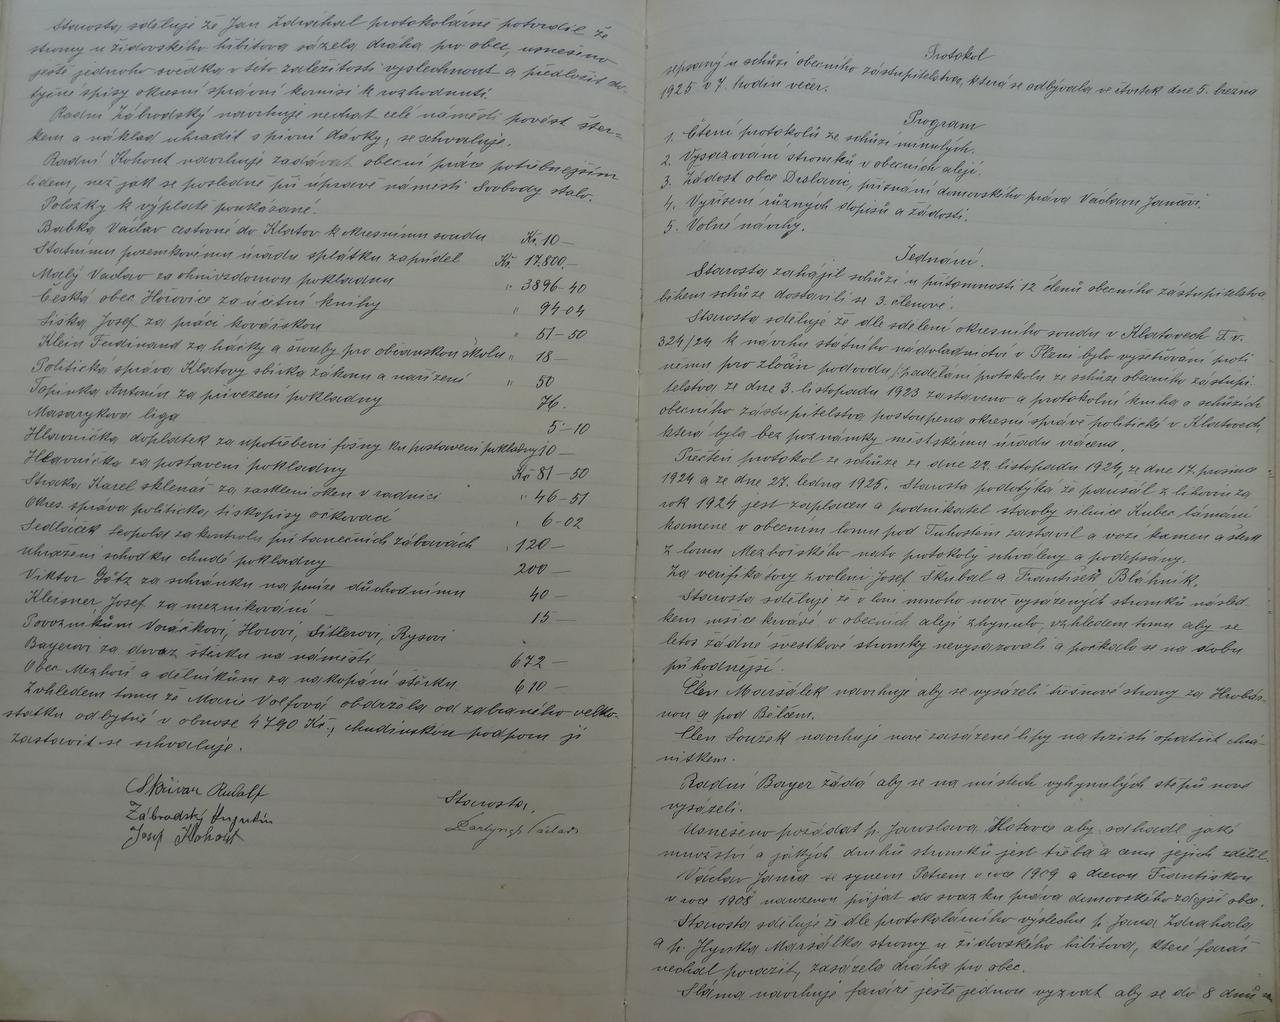 Starosta sděluje že Jan Zdráhal protokolárně potvrdil že
stromy u židovského hřbitova sázela dráha pro obec, usneseno
ještě jednoho svědka v této zaležitosti vyslechnout a předložit do-
tyčné spisy okresní správní komisi k rozhodnutí.
Radní Zábrodský navrhuje nechat celé náměstí pověst štěr-
kem a náklad uhradit s pivní dávky, se schvaluje.
Radní Kohout navrhuje zadávat obecní práce potřebnějším
lidem, než jak se posledně při úpravě náměstí Svobody stalo.
Položky k výplatě poukázané.
Babka Václav cestovné do Klatov k okresnímu soudu Kč 10 —
Statnímu pozemkovému úřadu splátku zapůdel Kč. 17.800.—
Malý Vaclav za ohnivzdornou pokladnu " 3896-40
Česká obec Hořovice za účetní knihy " 94-04
Siska Josef za práci kovářskou " 51-50
Klein Ferdinand za háčky a šrouby pro občanskou školu " 18 —
Politická správa Klatovy sbírka zákonu a nařízení " 50
Tapinka Antonín za přivezení pokladny 76.
Masarykova liga 5-10
Hlavnička doplatek za upotřebení fošny ku postavení pokladny 10 —
Hlavnička za postavení pokladny Kč 81-50
Straka Karel sklenář za zasklení oken v radnici " 46-51
Okres. správa politická tiskopisy očkovací " 6-02
Sedláček Leopold za kontrolu při tanečních zábavách " 120 —
uhrazení schodku chudé pokladny 200 —
Viktor Götz za schránku na peníze důchodnímu 40 —
Kleisner Josef za mezníkování 15 —
Povozníkům Voráčkovi, Horovi, Šitlerovi, Rysovi
Bayerovi za dovoz štěrku na náměstí 672 —
Obec Mezhoří a dělníkům za nakopání štěrku 610 —
Zvhledem tomu že Marie Volfová obdržela od zabraného velko-
statku odbytné v obnose 4790 Kč., chudinskou podporu jí
zastavit se schvaluje.
Skřivan Rudolf
Zábrodský Augustin
Josef Kohout
Starosta.
Protokol
sepsaný u schůzi obecního zástupitelstva, která se odbývala ve čtvrtek dne 5. března
1925 v 7. hodin večer.
Program
1. Čtení protokolů ze schůzí minulých.
2. Vysazování stromků v obecních alejí.
3. Žádost obce Dislavic, přiznání domovského práva Václavu Jančovi.
4. Vyřízení různých dopisů a žádostí.
5. Volné návrhy.
Jednání.
Starosta zahájil schůzi u přítomnosti 12 členů obecního zástupitelstva
během schůze dostavili se 3. členové.
Starosta sděluje že dle sdělení okresního soudu v Klatovech T. v.
324/24 k návrhu statního nádvladnictví v Plzni bylo vyšetřovaní proti
němu pro zločin podvodu, padělání protokolu ze schůze obecního zástupi-
telstva ze dne 3. listopadu 1923 zastaveno a protokolní kniha o schůzích
obecního zástupitelstva postoupena okresní správě politické v Klatovech,
která byla bez poznámky městskému úřadu vrácena.
Přečten protokol ze schůze ze dne 22. listopadu 1924, ze dne 17. prosince
1924 a ze dne 27. ledna 1925. Starosta podotýká že paušál z lihovin za
rok 1924 jest zaplacen a podnikatel stavby silnice Kubec lámání
kamene v obecním lomu pod Tuhoštěm zastavil a vozí kamen a štěrk
z lomu Mezhořského nato protokoly schváleny a podepsány.
Za verifikátory zvoleni Josef Škubal a František Bláhník.
Starosta sděluje že v loni mnoho nově vysázených stromků násled-
kem mšice krvavé v obecních alejí zhynulo, vzhledem tomu aby se
letos žádné švestkové stromky nevysazovali a počkalo se na dobu
příhodnejší.
Člen Maršálek navrhuje aby se vysázeli třešňové stromy za Hrobár-
nou a pod Bělčem.
Člen Soušek navrhuje nově zasazené lípy na tržišti opatřit chrá-
nítkem.
Radní Bayer žádá aby se na místech vyhynulých štěpů nové
vysázeli.
Usneseno požádat p. Jaroslava Hotovce aby odhadl jaké
množství a jakých druhů stromků jest třeba a cenu jejich zdělil.
Václav Janča se synem Petrem v roce 1909 a dcerou Františkou
v roce 1908 narozenou přijat do svazku práva domovského zdejší obce.
Starosta sděluje že dle protokolárního výslechu p. Jana Zdrahala
a p. Hynka Maršálka stromy u židovského hřbitova, které farář
nechal porazit, zasázela dráha pro obec.
Sláma navrhuje faráře ještě jednou vyzvat aby se do 8 dnů